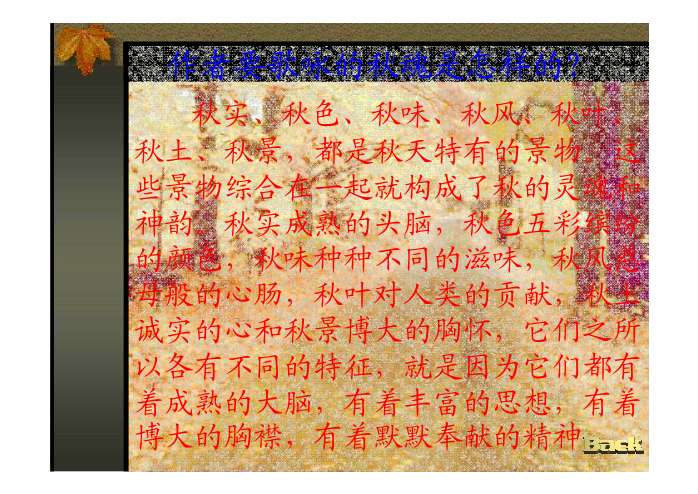 作者要歌咏的秋魂是怎样的?
秋实、秋色、秋味、秋风、秋叶、
秋土、秋景，都是秋天特有的景物。这
些景物综合在一起就构成了秋的灵魂和
神韵。秋实成熟的头脑，秋色五彩缤纷
的颜色，秋味种种不同的滋味，秋风慈
母般的心肠，秋叶对人类的贡献，秋土
诚实的心和秋景博大的胸怀，它们之所
以各有不同的特征，就是因为它们都有
着成熟的大脑，有着丰富的思想，有着
博大的胸襟，有着默默奉献的精神。
Back